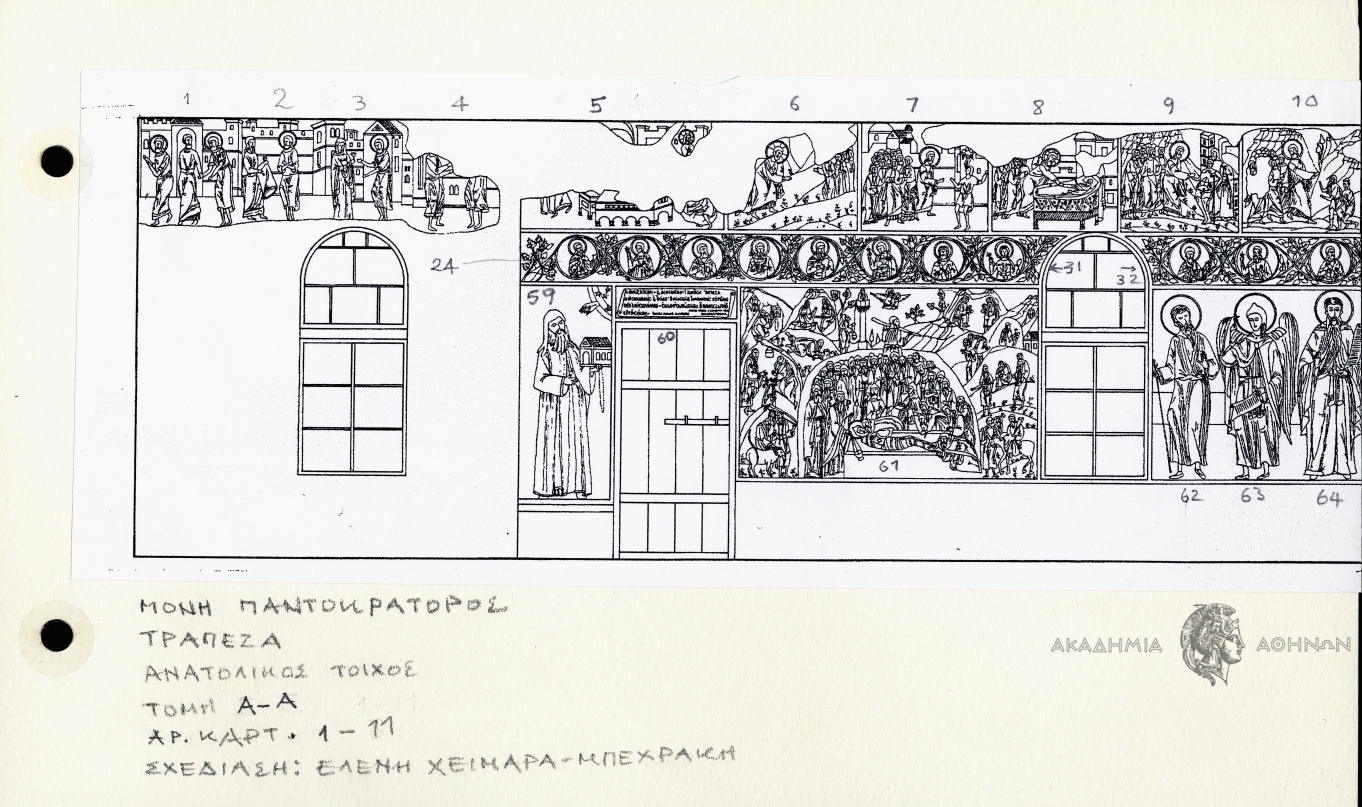 1 2 3 4 5 6 7 8 9 10
24
31
32
59
60
61
62 63 64
ΜΟΝΗ ΠΑΝΤΟΚΡΑΤΟΡΟΣ
ΤΡΑΠΕΖΑ
ΑΝΑΤΟΛΙΚΟΣ ΤΟΙΧΟΣ
ΤΟΜΗ Α-Α
ΑΡ. ΚΑΡΤ. 1-11
ΣΧΕΔΙΑΣΗ: ΕΛΕΝΗ ΧΕΙΜΑΡΑ-ΜΠΕΧΡΑΚΗ
ΑΚΑΔΗΜΙΑ ΑΘΗΝΩΝ